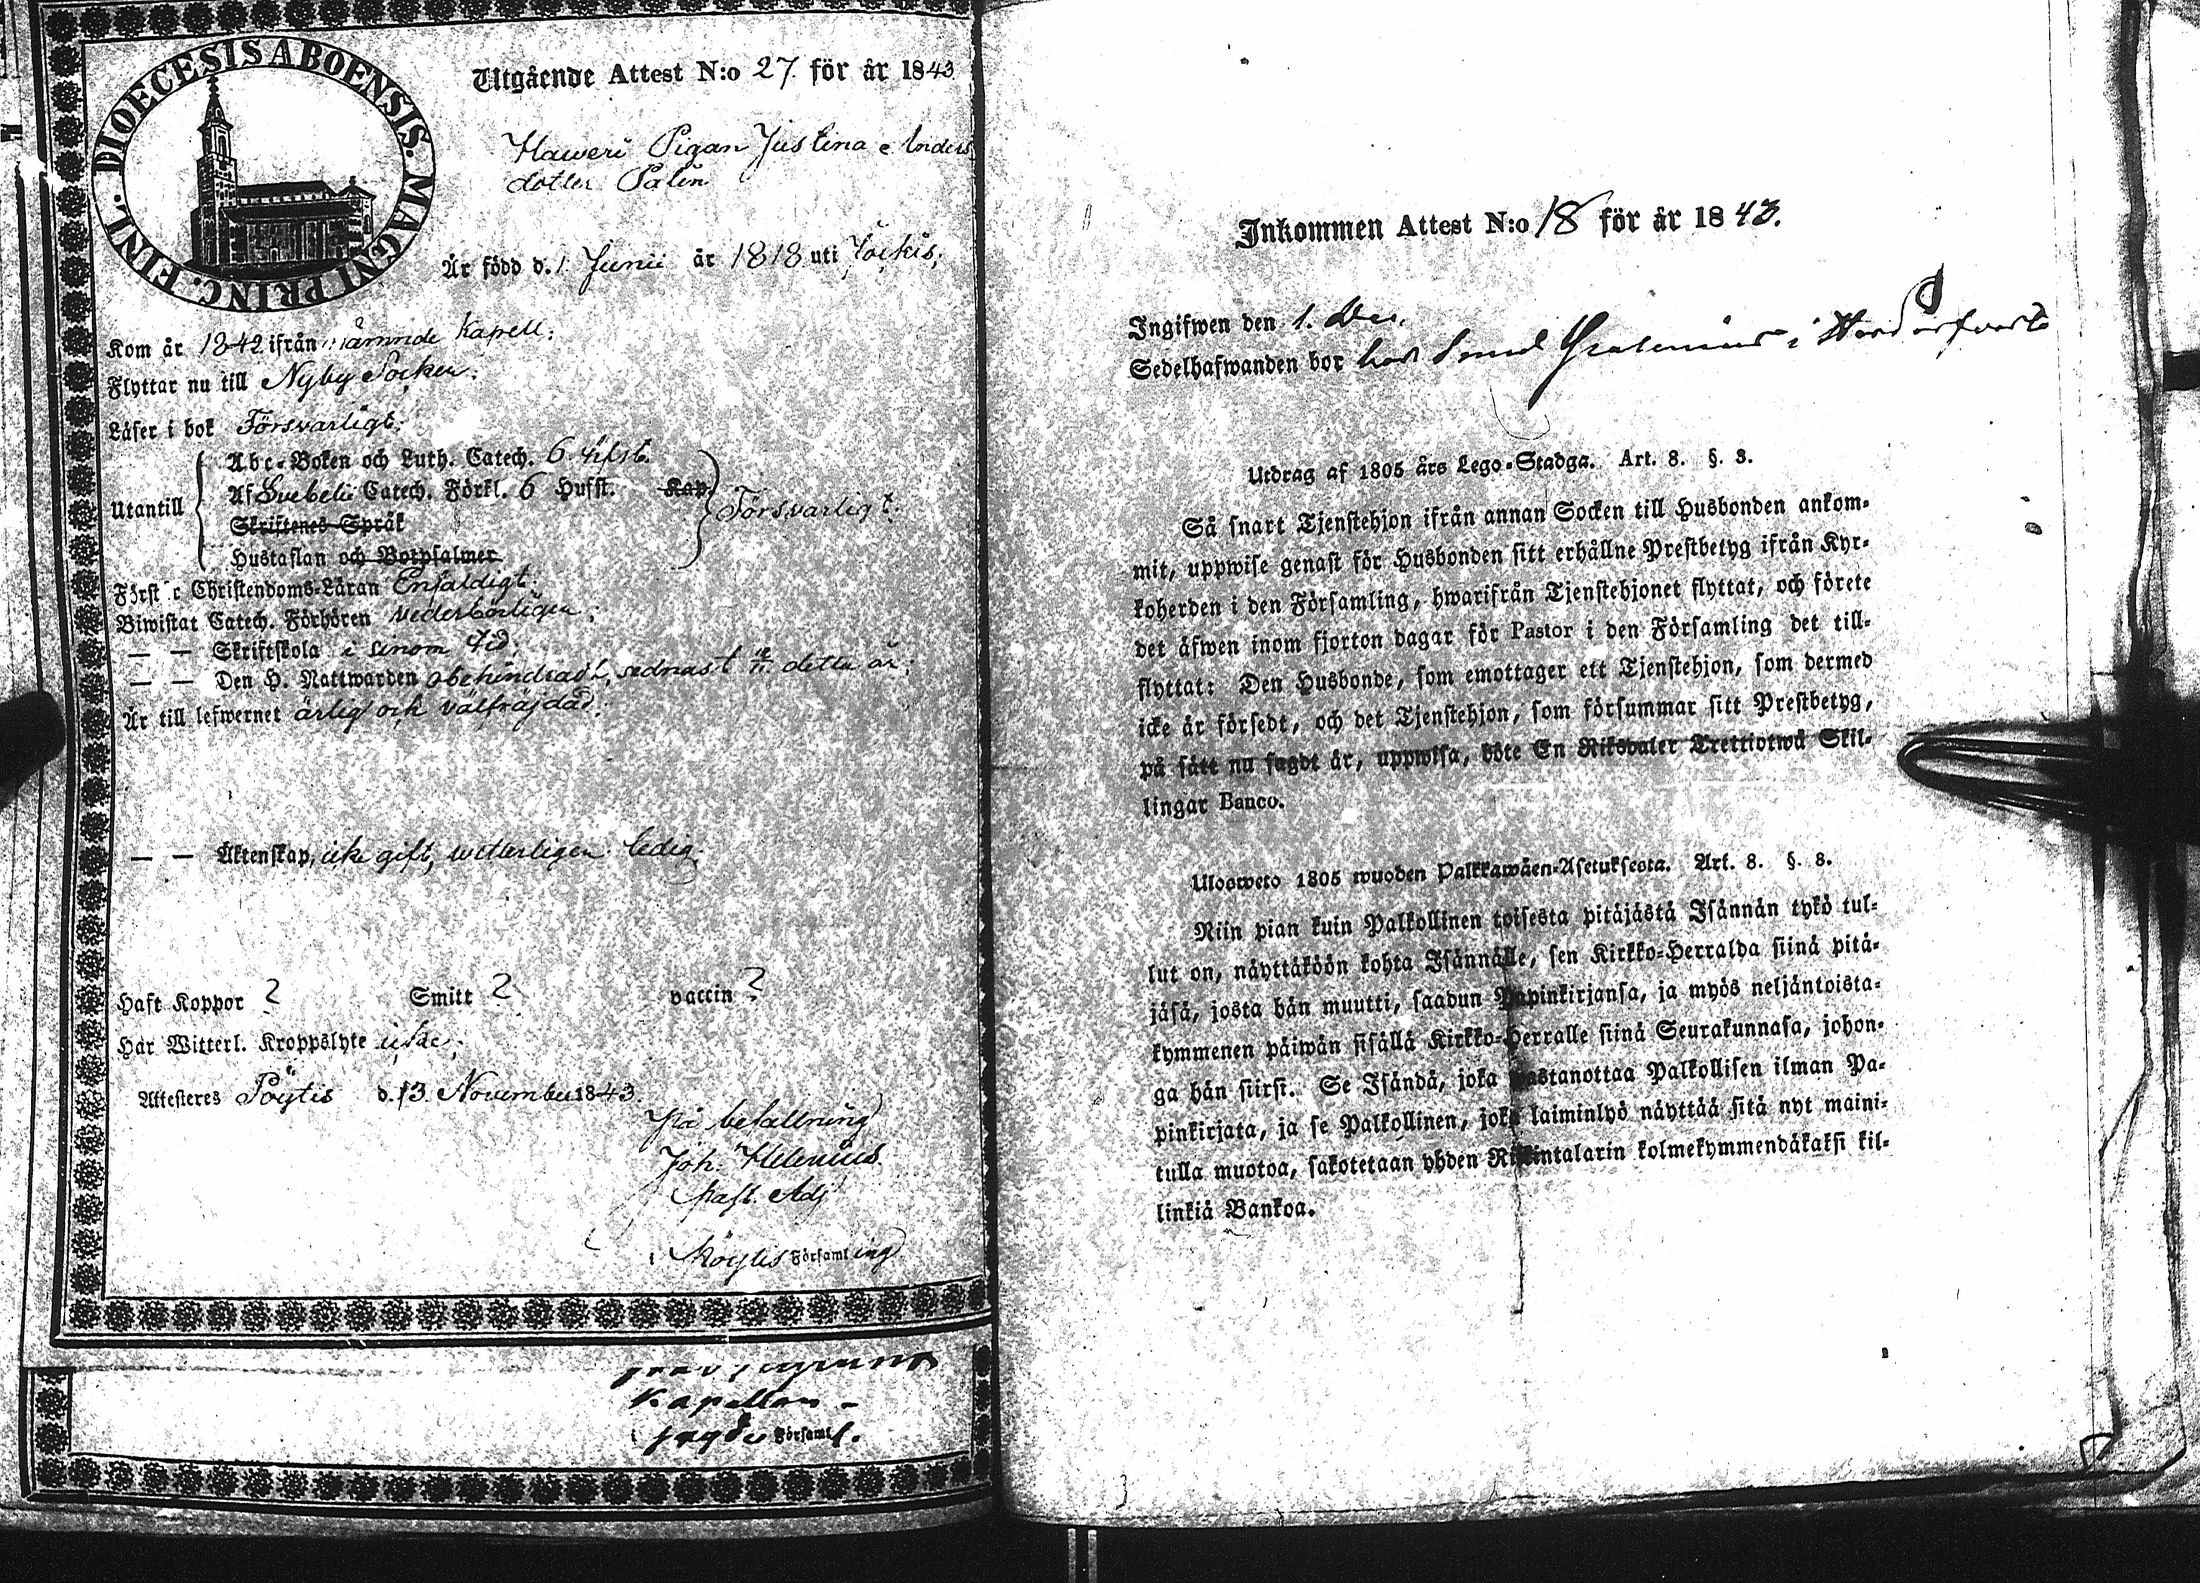 DIOECESIS ABOENSIS. MAGNI PRINC. FINL.
Utgående Attest N:o 27. för år 1843
Haweri Pigan Justina Anders
dotter Palin
Är född d. 1 Junii år 1818 uti Jockis;
Kom år 1842 ifrån nämnde Kapell;
Flyttar nu till Nyby Socken;
Läser i bok Försvarligt;
Utantill
Abc-Boken och Luth. Catech. 6 Hfst.
Af Svebelii Catech. Förkl. 6 Hufst. Kap.
Skriftenes Språk
Hustaflan och Botpsalmer
Försvarligt.
Först r Christendoms-Läran Enfaldigt;
Biwistat Catech. Förhören vederbörligen;
— — Skriftskola i sinom tid;
— — Den H. Nattwarden obehindradt, sednast detta år;
Är till lefwernet ärlig och välfräjdad;
— — Äktenskap, icke gift, witterligen ledig.
Haft Koppor ? Smitt ? vaccin ?
Har Witterl. Kroppslyte icke;
Attesteres Pöytis d. 13 November 1843
På befallning
Joh. Helenius
Past. Adj
Pöytis Församling
Kapellan
Församl.
Inkommen Attest N:o 18 för år 1843.
Ingifwen den 1. Dec.
Sedelhafwanden bor hos i
Utdrag af 1805 års Lego-Stadga. Art. 8. §. 3.
Så snart Tjenstehjon ifrån annan Socken till Husbonden ankom-
mit, uppwise genast för Husbonden sitt erhållne Prestbetyg ifrån Kyr-
koherden i den Församling, hwarifrån Tjenstehjonet flyttat, och förete
det äfwen inom fjorton dagar för Pastor i den Församling det till-
flyttat: Den Husbonde, som emottager ett Tjenstehjon, som dermed
icke är försedt, och det Tjenstehjon, som försummar sitt Prestbetyg,
på sätt nu sagdt är, uppwisa, böte En Riksdaler Trettiotwå Skil-
lingar Banco.
Ulosweto 1805 wuoden Palkkawäen-Asetuksesta. Art. 8. §. 3.
Niin pian kuin Palkollinen toisesta pitäjästä Isännän tykö tul-
lut on, näyttäköön kohta Isännälle, sen Kirkko-Herralda siinä pitä-
jäsä, josta hän muutti, saadun Papinkirjansa, ja myös neljäntoista-
kymmenen päiwän sisällä Kirkko-Herralle siinä Seurakunnasa, johon-
ga hän siirsi. Se Isändä, joka wastanottaa Palkollisen ilman Pa-
pinkirjata, ja se Palkollinen, joka laiminlyö näyttää sitä nyt maini-
tulla muotoa, sakotetaan yhden Riikintalarin kolmekymmendäkaksi kil-
linkiä Bankoa.